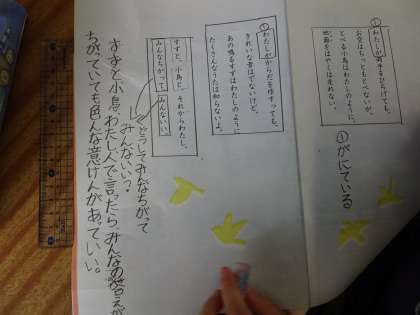 ①
わたしが両手をひろげても、
お空はちっともとべないが、
とべる小鳥はわたしのように、
地面をはやくは走れない。
①がにている
①
わたしがからだをゆすっても、
きれいな音はでないけど、
あの鳴るすずはわたしのように
たくさんなうたは知らないよ。
すずと、小鳥と、それからわたし、
みんなちがって、みんないい。
どうしてみんなちがって
みんないい?
すずと小鳥、わたし、人で言ったら、みんなの答えが
ちがていても色んな意けんがあっていい。